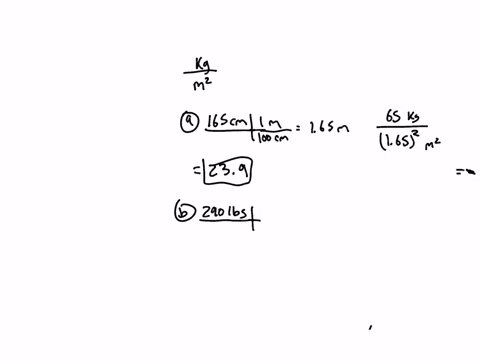 Kg / m²
(a) 165 cm | 1 m / 100 cm = 1.65 m 65 Kg / (1.65)² m²
= 23.9
=
(b) 290 lbs |